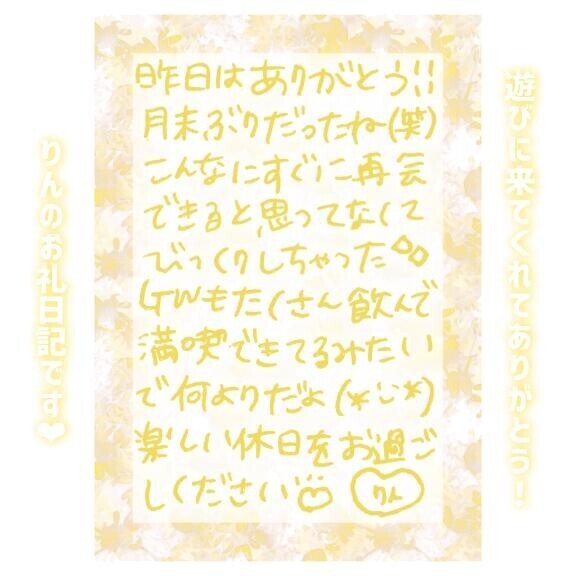 遊びに来てくれてありがとう!
昨日はありがとう!!
月末ぶりだったね(笑)
こんなにすぐに再会
できると思ってなくて
びっくりしちゃった
GWもたくさん飲んで
満喫できてるみたい
で何よりだよ(*ˊ˘ˋ*)
楽しい休日をお過ご
しください
りん
りんのお礼日記です❤